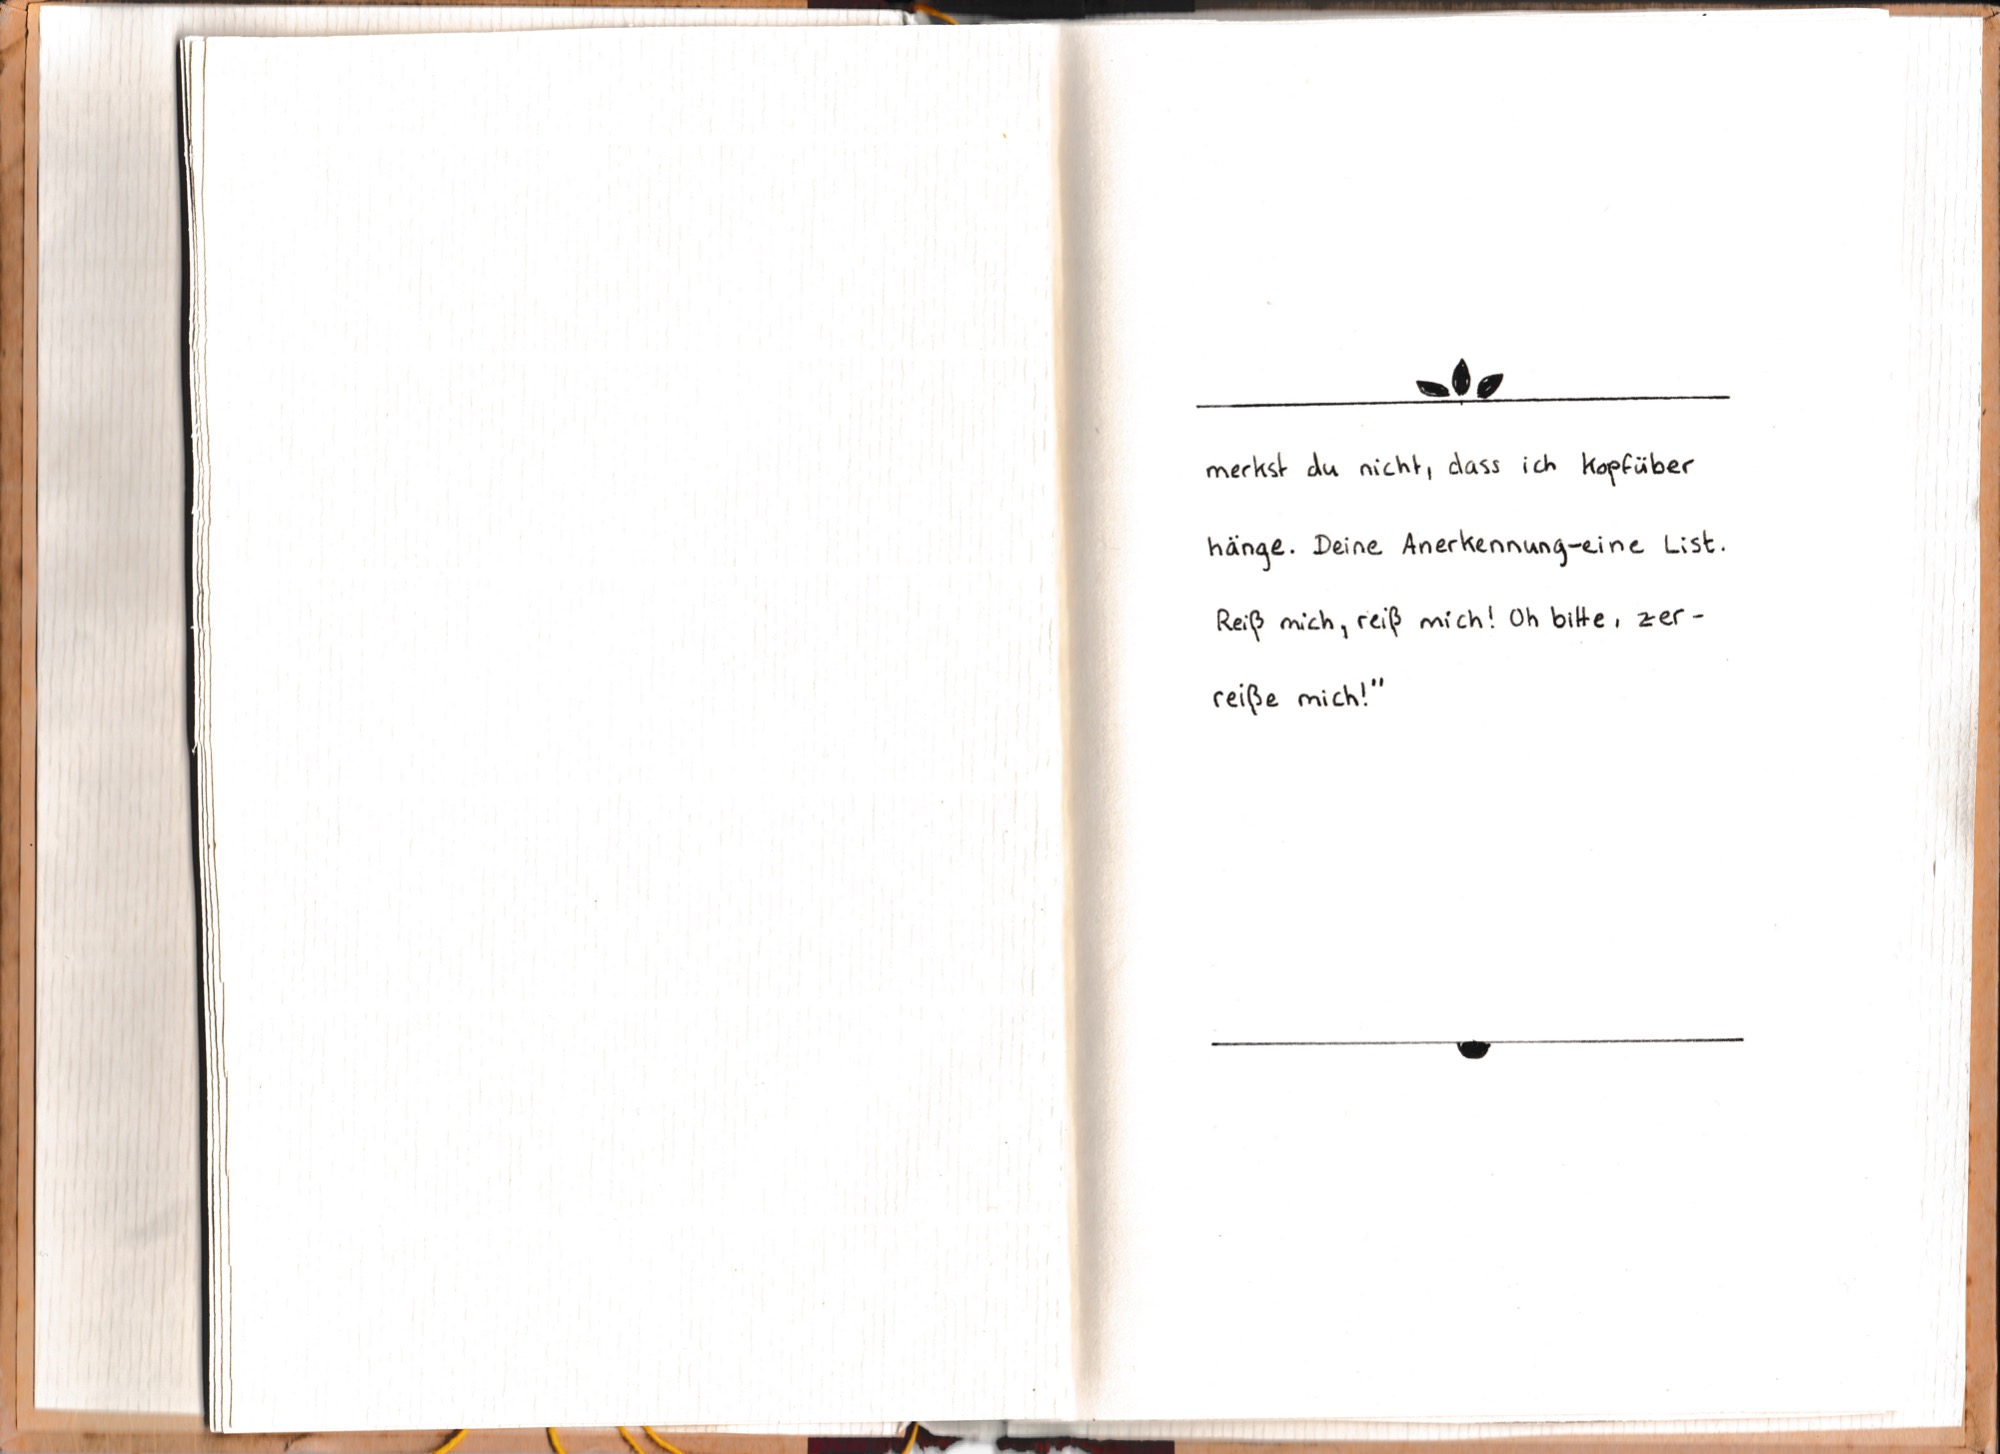 merkst du nicht, dass ich kopfüber
hänge. Deine Anerkennung-eine List.
Reiß mich, reiß mich! Oh bitte, zer-
reiße mich!"